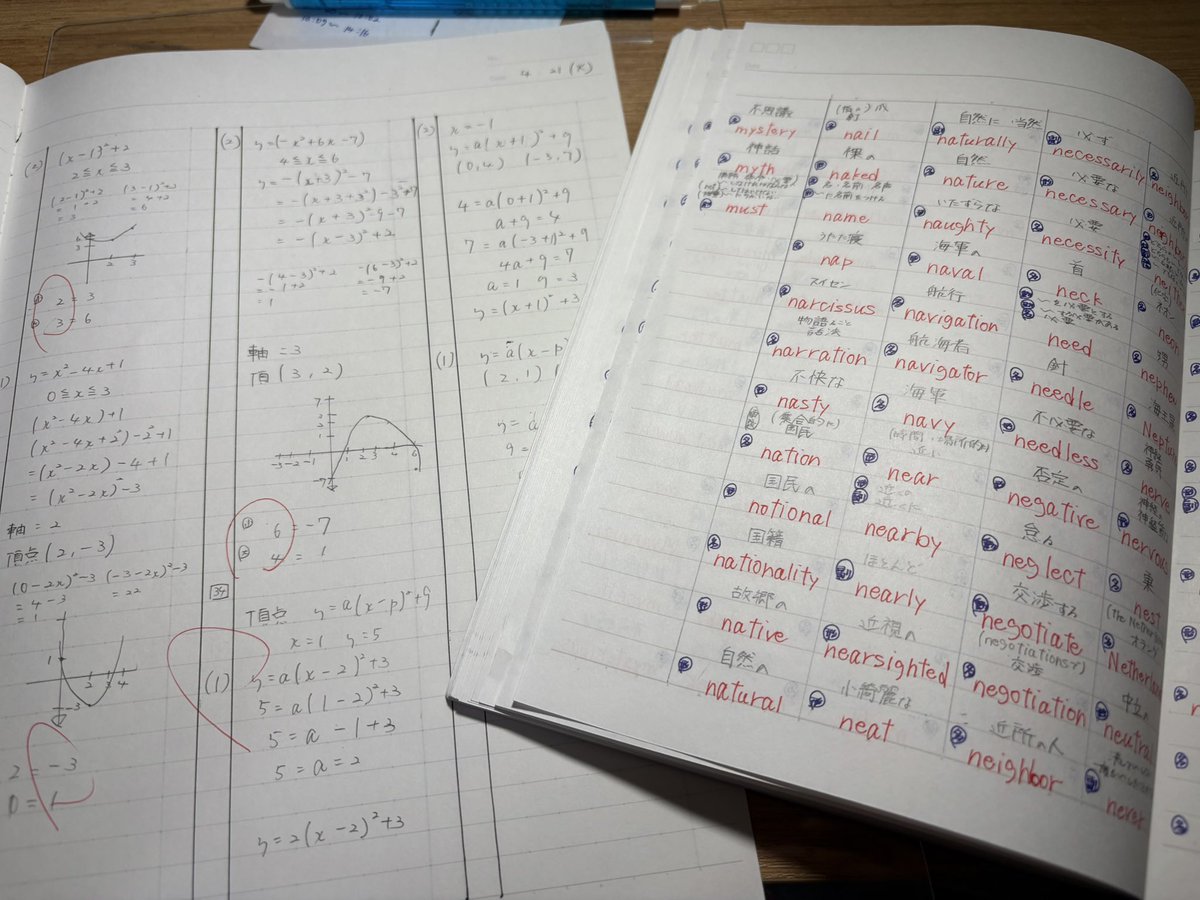 4 21 (火)
(2)
(x-1)²+2
2≦x≦3
(2-1)²+2
(3-1)²+2
= 1+2
= 4+2
= 3
= 6
2 = 3
3 = 6
y=x²-4x+1
0≦x≦3
(x²-4x)+1
(x²-4x+2²)-2²+1
=(x²-2x)-4+1
=(x²-2x)²-3
軸=2
頂点(2,-3)
(0-2x)²-3
(-3-2x)²-3
= 4-3
= 22
= 1
2 = -3
0 = 1
(2)
y=(-x²+6x-7)
4≦x≦6
y=-(x+3)²-7
=-(x+3+3²)-3²-7
=-(x+3)²-9-7
=-(x-3)²+2
-(4-3)²+2
-(6-3)²+2
=-1+2
=-9+2
= 1
=-7
軸=3
頂(3,2)
6 = -7
4 = 1
34
頂点 y=a(x-p)²+q
x=1 y=5
(1)
y=a(x-2)²+3
5=a(1-2)²+3
5=a-1+3
5=a=2
y=2(x-2)²+3
(3)
x=-1
y=a(x+1)²+q
(0,4) (-3,7)
4=a(0+1)²+q
a+q=4
7=a(-3+1)²+q
4a+q=7
a=1 q=3
y=(x+1)²+3
(1)
y=a(x-p)
(2,1)
y=a
不思議
mystery
神話
myth
must
(指の)爪
釘
nail
裸の
naked
名・名前・名声
name
うたた寝
nap
スイセン
narcissus
物語ること
話法
narration
不快な
nasty
(集合的に)
国民
nation
国民の
national
国籍
nationality
故郷の
native
自然の
natural
自然に 当然
naturally
自然
nature
いたずらな
naughty
海軍の
naval
航行
navigation
航海者
navigator
海軍
navy
(時間・場所的に)
近い
near
近くの
近くに
nearby
ほとんど
nearly
近視の
nearsighted
小綺麗な
neat
必ず
necessarily
必要な
necessary
必要
necessity
首
neck
〜を必要とする
〜する必要がある
必要
need
針
needle
不必要な
needless
否定の
negative
怠る
neglect
交渉する
negotiate
(negotiationsで)
交渉
negotiation
近所の人
neighbor
neon
甥
nephew
海王星
Neptun
nerve
nervous
巣
nest
(the Nether
オランダ
Netherland
中立の
neutral
never